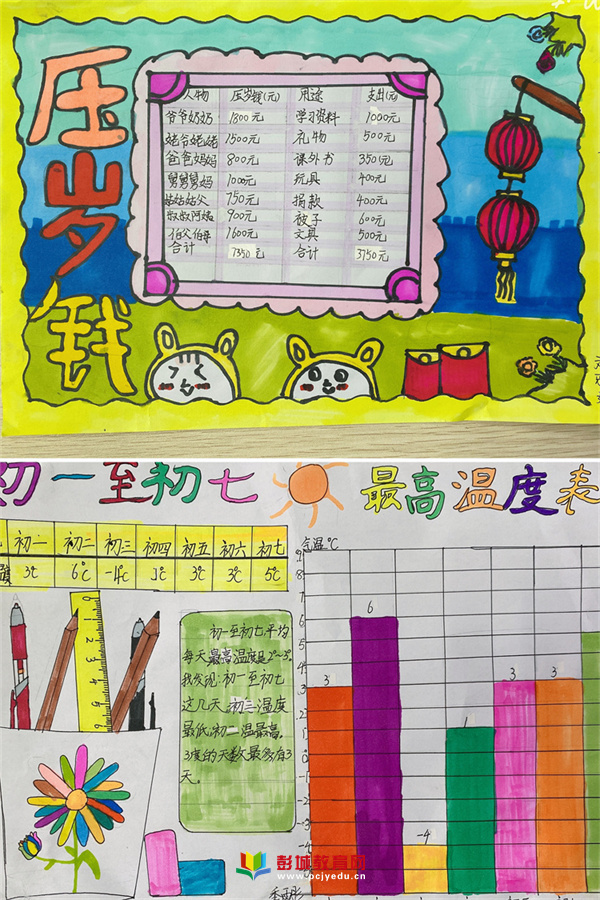 压岁钱
人物 压岁钱(元) 用途 支出(元)
爷爷奶奶 1800元 学习资料 1000元
姥爷姥姥 1500元 礼物 500元
爸爸妈妈 800元 课外书 350元
舅舅舅妈 1000元 玩具 400元
姑姑姑父 750元 捐款 400元
叔叔阿姨 900元 被子 600元
伯父伯母 1600元 文具 500元
合计 7350元 合计 3750元
初一至初七 最高温度表
初一 初二 初三 初四 初五 初六 初七
3℃ 6℃ -4℃ 1℃ 3℃ 3℃ 5℃
气温℃
初一至初七平均
每天最高温度是2℃~3℃
我发现:初一至初七
这几天,初三温度
最低,初二温最高,
3度的天数最多有3
天。
3 6 -4 1 3 3
彭城教育网
www.pcjyedu.cn